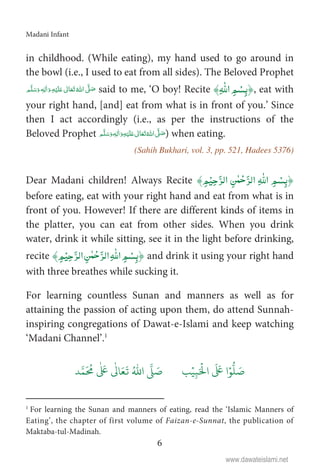 Madani Infant
in childhood. (While eating), my hand used to go around in
the bowl (i.e., I used to eat from all sides). The Beloved Prophet
صَلَّى اللهُ تَعَالٰى عَلَيْهِ وَاٰلِهٖ وَسَلَّم said to me, ‘O boy! Recite ﴾بِسْمِ اللهِ﴿, eat with
your right hand, [and] eat from what is in front of you.’ Since
then I act accordingly (i.e., as per the instructions of the
Beloved Prophet صَلَّى اللهُ تَعَالٰى عَلَيْهِ وَاٰلِهٖ وَسَلَّم) when eating.
(Sahih Bukhari, vol. 3, pp. 521, Hadees 5376)
Dear Madani children! Always Recite ﴾بِسْمِ اللهِ الرَّحْمٰنِ الرَّحِيْمِ﴿
before eating, eat with your right hand and eat from what is in
front of you. However! If there are different kinds of items in
the platter, you can eat from other sides. When you drink
water, drink it while sitting, see it in the light before drinking,
recite ﴾بِسْمِ اللهِ الرَّحْمٰنِ الرَّحِيْمِ﴿ and drink it using your right hand
with three breathes while sucking it.
For learning countless Sunan and manners as well as for
attaining the passion of acting upon them, do attend Sunnah-
inspiring congregations of Dawat-e-Islami and keep watching
‘Madani Channel’.1
صَلُّوْا عَلَى الْحَبِيْب صَلَّى اللهُ تَعَالٰى عَلٰى مُحَمَّد
1 For learning the Sunan and manners of eating, read the ‘Islamic Manners of
Eating’, the chapter of first volume of Faizan-e-Sunnat, the publication of
Maktaba-tul-Madinah.
6
www.dawateislami.net